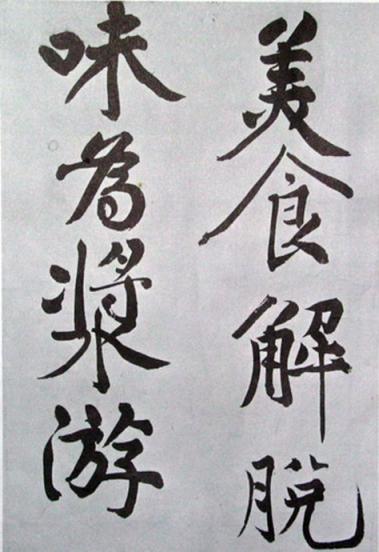 美食解脱
味為漿游